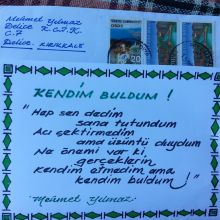 Mehmet Yılmaz
Delice K.Ç.İ.K.
C.7
Delice - KIRIKKALE
20
KENDİM BULDUM !
"Hep sen dedim
sana tutundum
Acı çektirmedim
ama üzüntü duydum
Ne önemi var ki
gerçeklerin
Kendim etmedim ama
kendim buldum!"
Mehmet Yılmaz